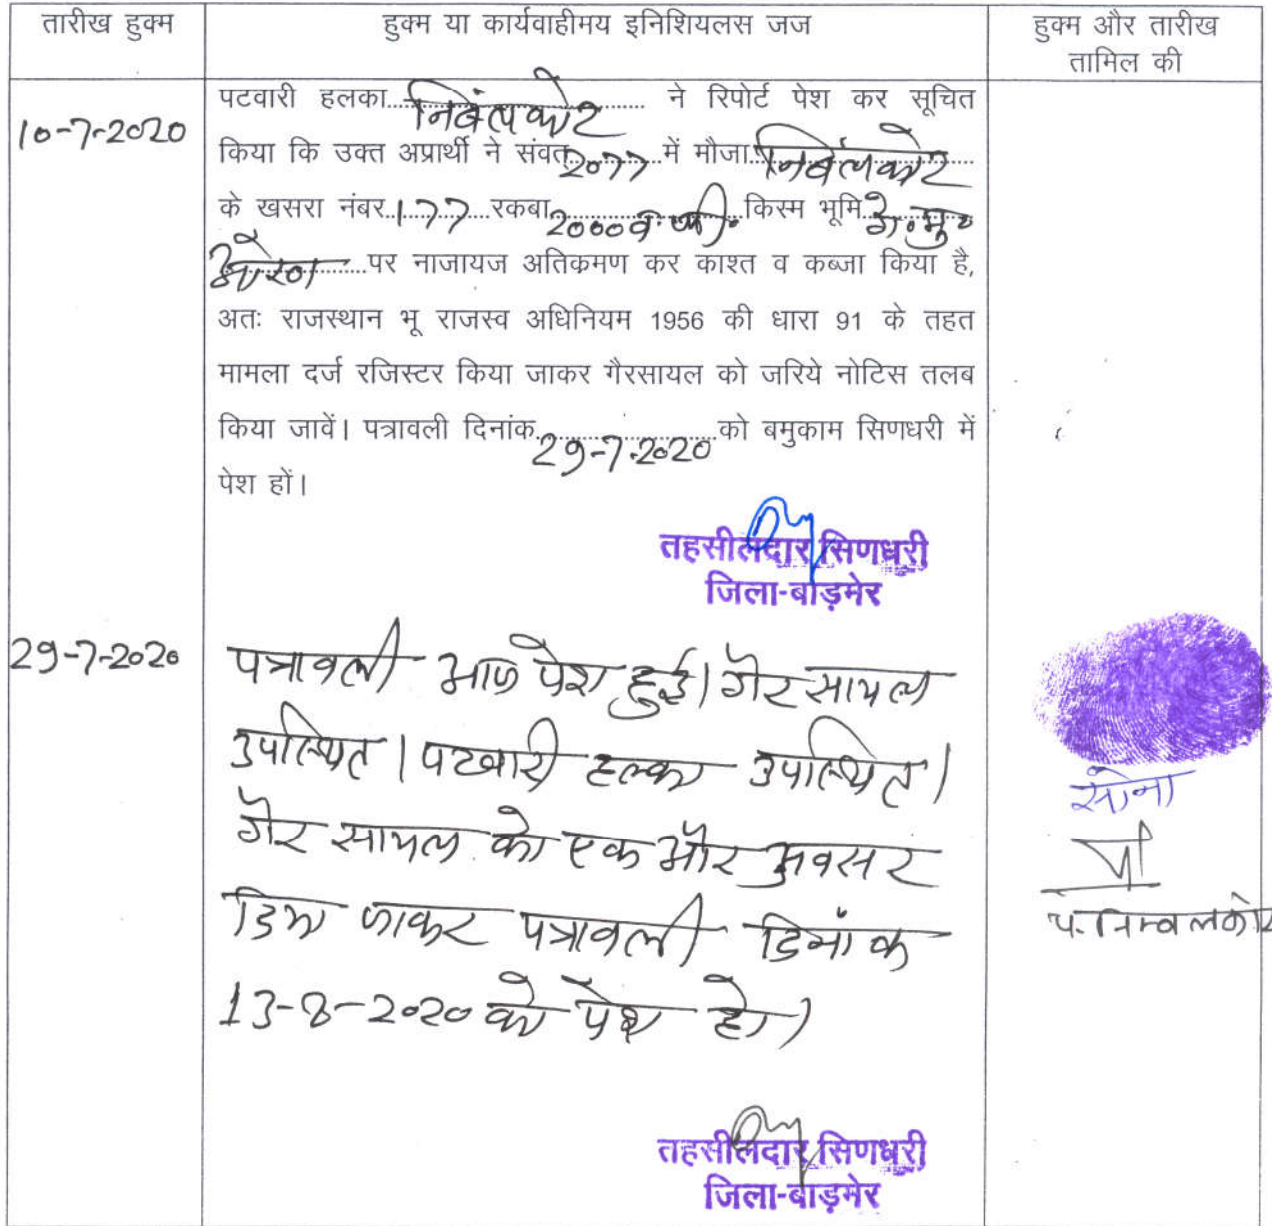 तारीख हुक्म
हुक्म या कार्यवाहीमय इनिशियलस जज
हुक्म और तारीख
तामिल की
10-7-2020
पटवारी हलका निबंलकोट ने रिपोर्ट पेश कर सूचित
किया कि उक्त अप्रार्थी ने संवत 2077 में मौजा निबंलकोट
के खसरा नंबर 177 रकबा 2000 व.मी. किस्म भूमि गै.मु.
ओरण पर नाजायज अतिक्रमण कर काश्त व कब्जा किया है,
अतः राजस्थान भू राजस्व अधिनियम 1956 की धारा 91 के तहत
मामला दर्ज रजिस्टर किया जाकर गैरसायल को जरिये नोटिस तलब
किया जावें। पत्रावली दिनांक 29-7-2020 को बमुकाम सिणधरी में
पेश हों।
तहसीलदार सिणधरी
जिला-बाड़मेर
29-7-2020
पत्रावली आज पेश हुई। गैर सायल
उपस्थित। पटवारी हल्का उपस्थित।
गैर सायल को एक और अवसर
दिया जाकर पत्रावली दिनांक
13-8-2020 को पेश हो।
सोना
प. निम्बलकोट
तहसीलदार सिणधरी
जिला-बाड़मेर